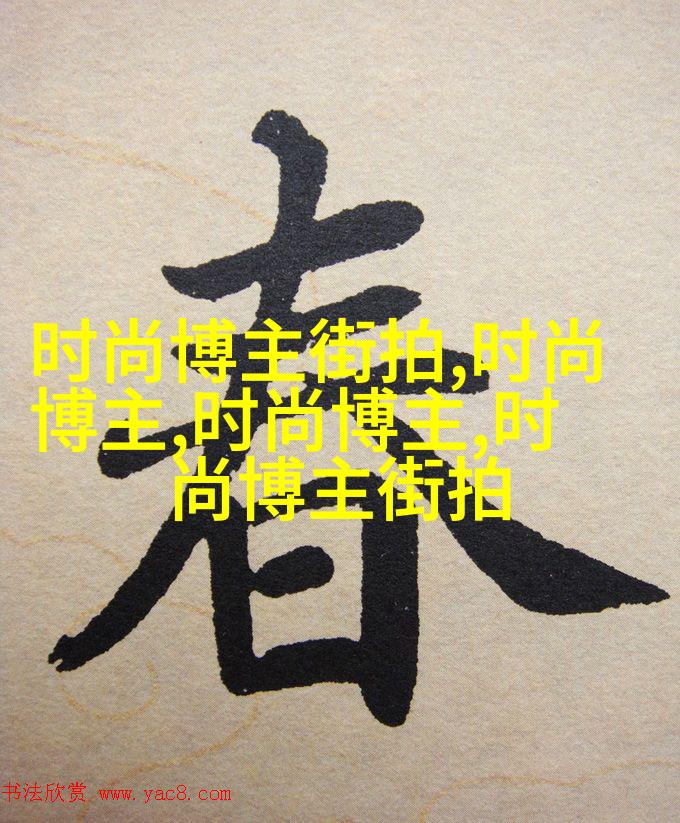 春
时尚博主街拍,时尚
博主,时尚博主,时
尚博主街拍
书法欣赏 www.yac8.com